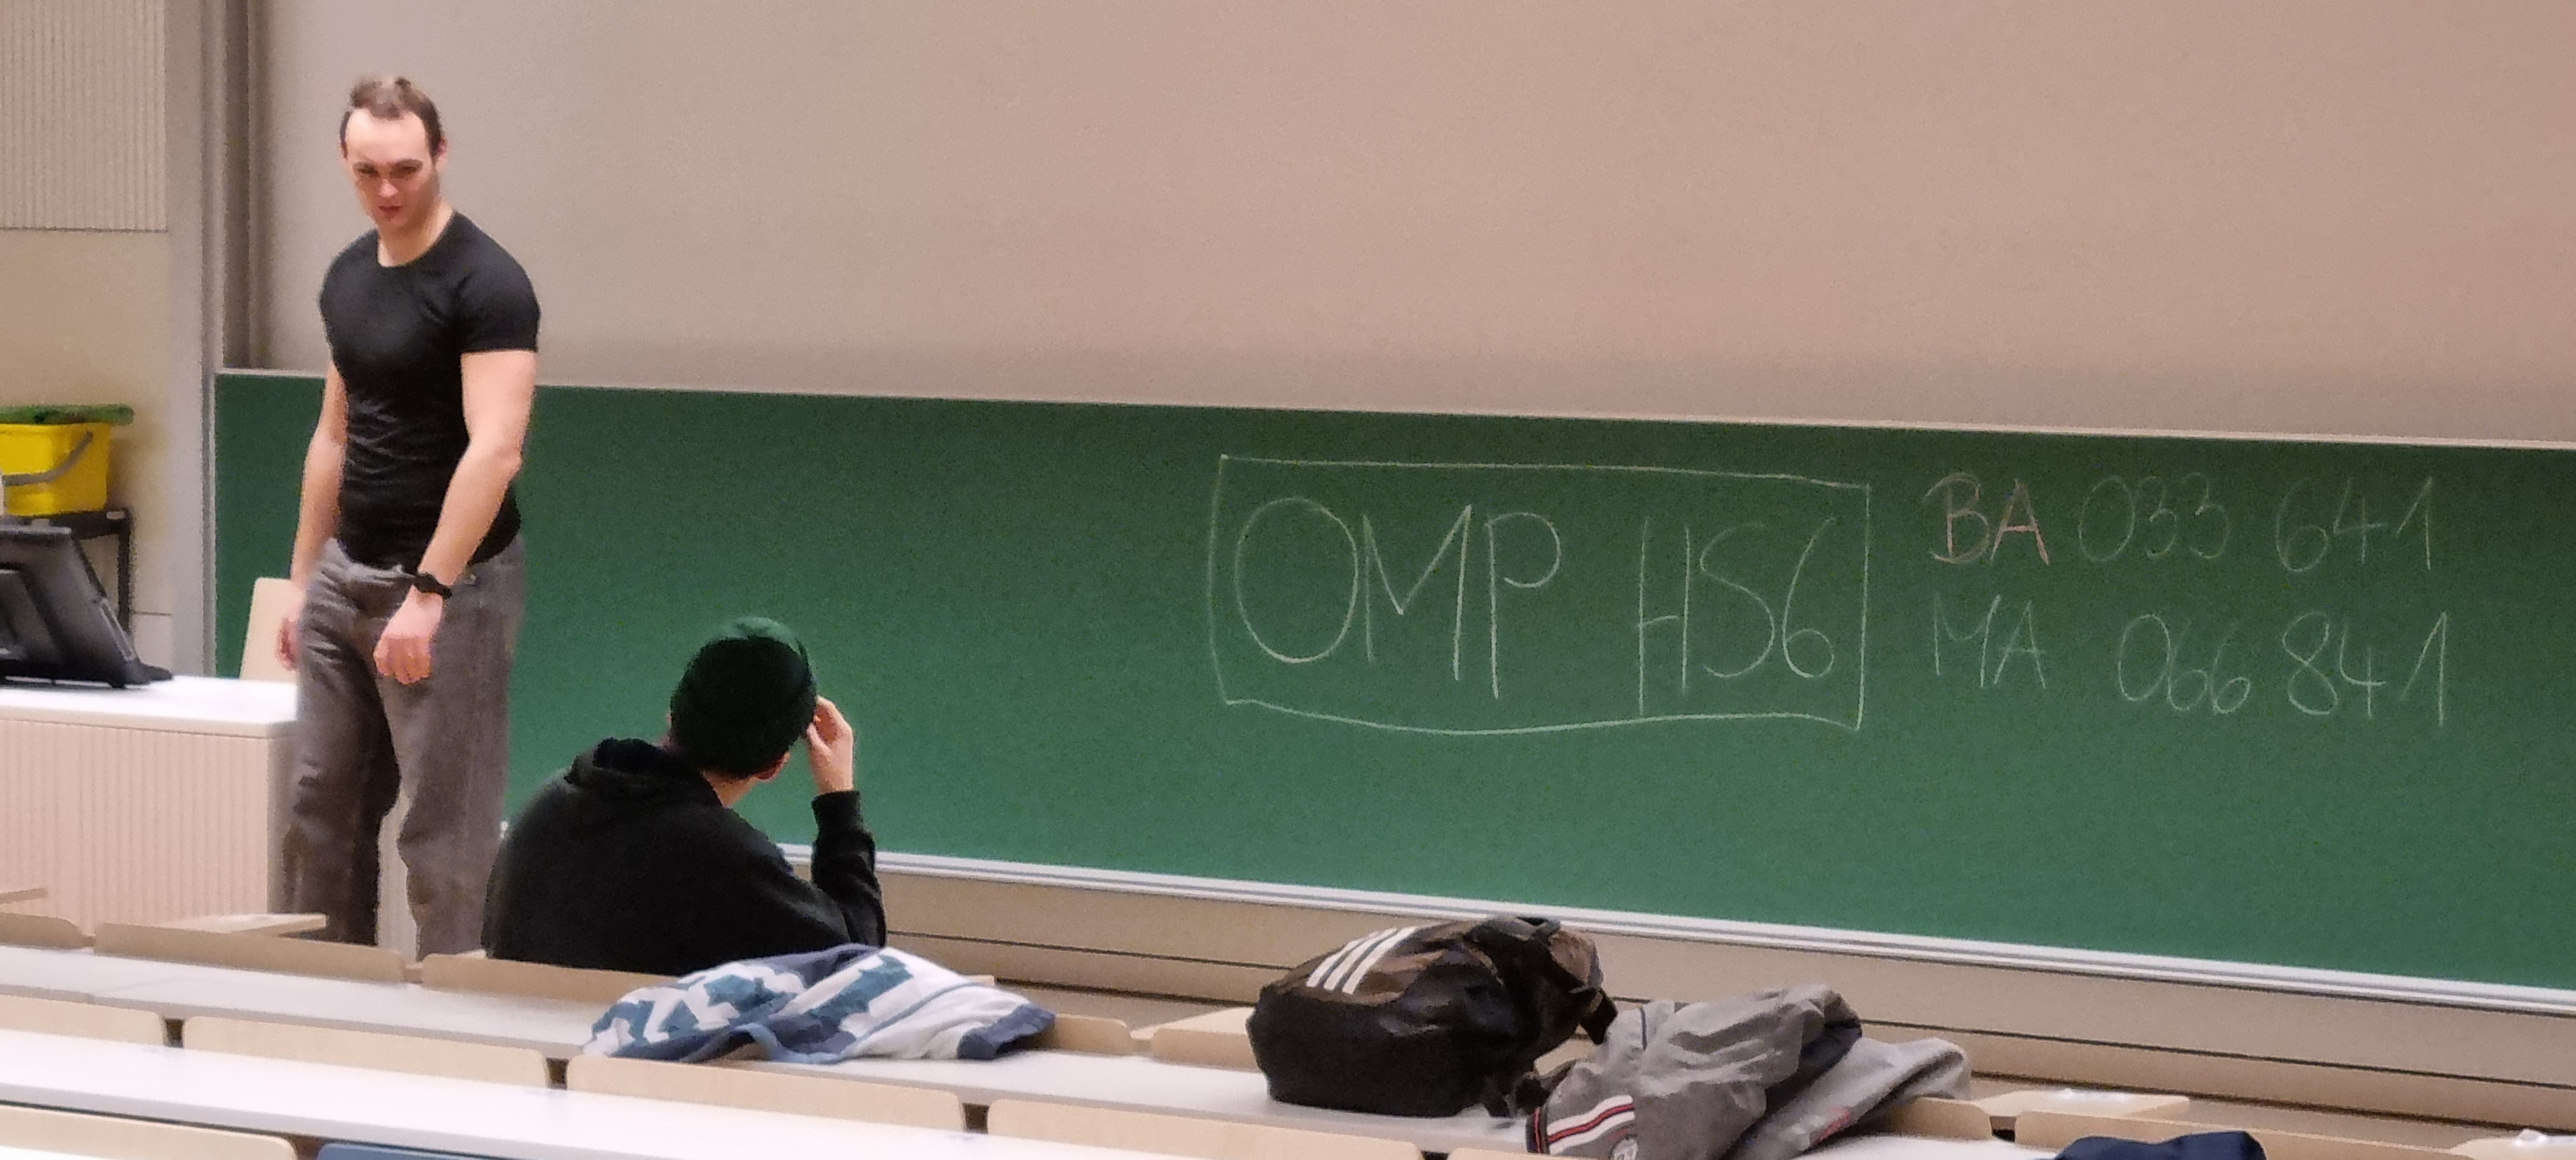 OMP HS6
BA 033 641
MA 066 841